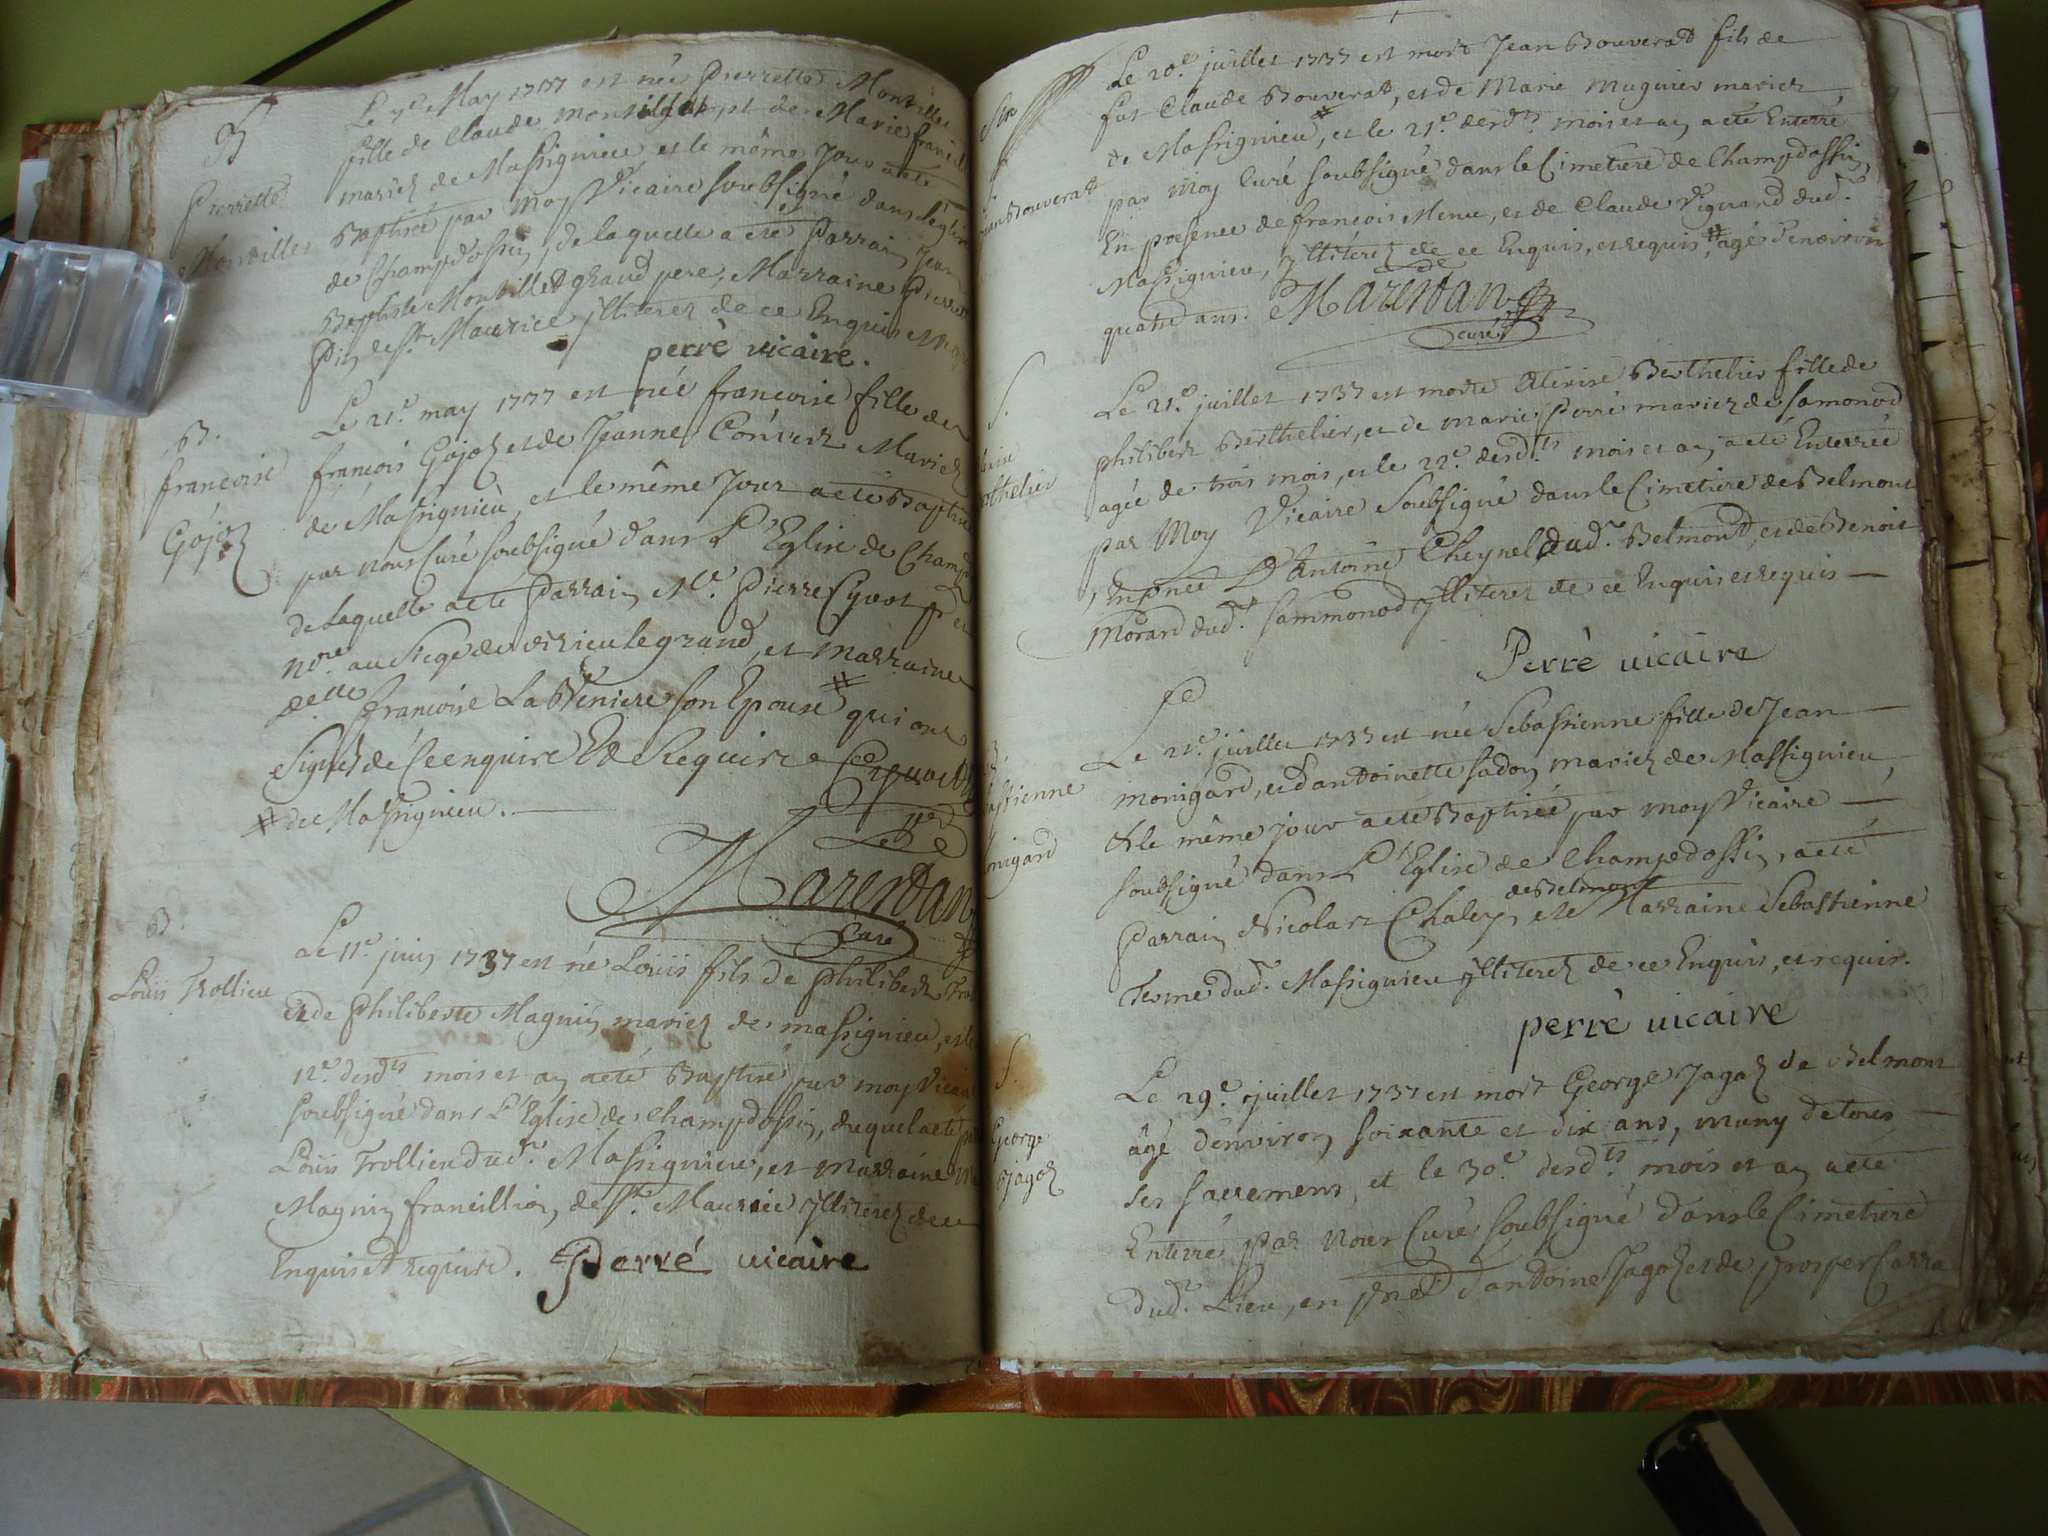 B
Pierrette
Montillet
Le 7e May 1737 est née Pierrette Montillet
fille de Claude Montillet et de Marie
mariez de Massignieu et le même Jour a eté
Baptisée par moy Vicaire soubsigné dans l'église
de Champdossin, de laquelle a eté Parrain Jean
Baptiste Montillet grand pere, Marraine Pierrette
de St. Maurice yllitérez de ce Enquis et
perré vicaire.
B.
françoise
Gojoz
Le 21e. may 1737 est née françoise fille de
françois Gojoz et de Jeanne Convert Mariez
de Massignieu, et le même Jour a eté Baptisée
par nous Curé soubsigné dans L'Eglise de
de Laquelle a eté Parrain Me. Pierre Cyvoct
nore. au Siege de virieu le grand, et Marraine
delle françoise La son Epouse # qui ont
Signez de Ce enquire Et de Require Cyvoct
# de Massignieu.
Marestan
Curé
B.
Loüis Trollieu
Le 11e. juin 1737 est né Loüis fils de philibert
et de Philiberte Magnin mariez de massignieu, et le
12e. desdts mois et an a eté Baptisé par moy Vicaire
soubsigné dans L'Eglise de Champdossin, duquel a eté
Loüis Trollieu dudt. Massignieu, et Marraine
Magnin francillion, de St. Maurice yllitérez de ce
Enquis et require. Perré vicaire
Le 20e. juillet 1737 est mort Jean Bouverat fils de
fut Claude Bouverat, et de Marie Muguier mariez
de Massignieu #, et le 21e. desdts mois et an a eté Enterré
par moy Curé soubsigné dans le Cimetiere de Champdossin,
En présence de françois Menu, et de Claude Vignard dudt.
Massignieu, yllitérez de ce Enquis, et requis, # agé d'environ
quatre ans. Marestan
curé
S.
Le 21e. juillet 1737 est morte Berthelier fille de
philibert Berthelier, et de marie Perré mariez de Samonod
agée de trois mois, et le 22e. desdts mois et an a eté Enterrée
par Moy Vicaire Soubsigné dans le Cimetiere de Belmont
En pnce D'Antoine Cheynel dudt. Belmont, et de Benoit
Morard dudt. Sammonod yllitérez de ce Enquis et requis
Perré vicaire
Le
Le 21e. juillet 1737 est née Sebastienne fille de Jean
monigard, et d'antoinette Sadon mariez de Massignieu,
& le même jour a eté Baptisée par moy Vicaire
soubsigné dans L'Eglise de Champdossin, a eté
Parrain Nicolas Chaley de Belmont, et Marraine Sebastienne
Terme dudt. Massignieu yllitérez de ce Enquis, et requis.
perré vicaire
S.
George
Jagoz
Le 29e. juillet 1737 est mort George Jagoz de Belmont
âgé d'environ soixante et dix ans, muny de tous
ses sacremens, et le 30e. desdts. mois et an a eté
Enterré par Nous Curé soubsigné dans le Cimetiere
dudt. Lieu, en pnce d'antoine Jagoz et de prosper